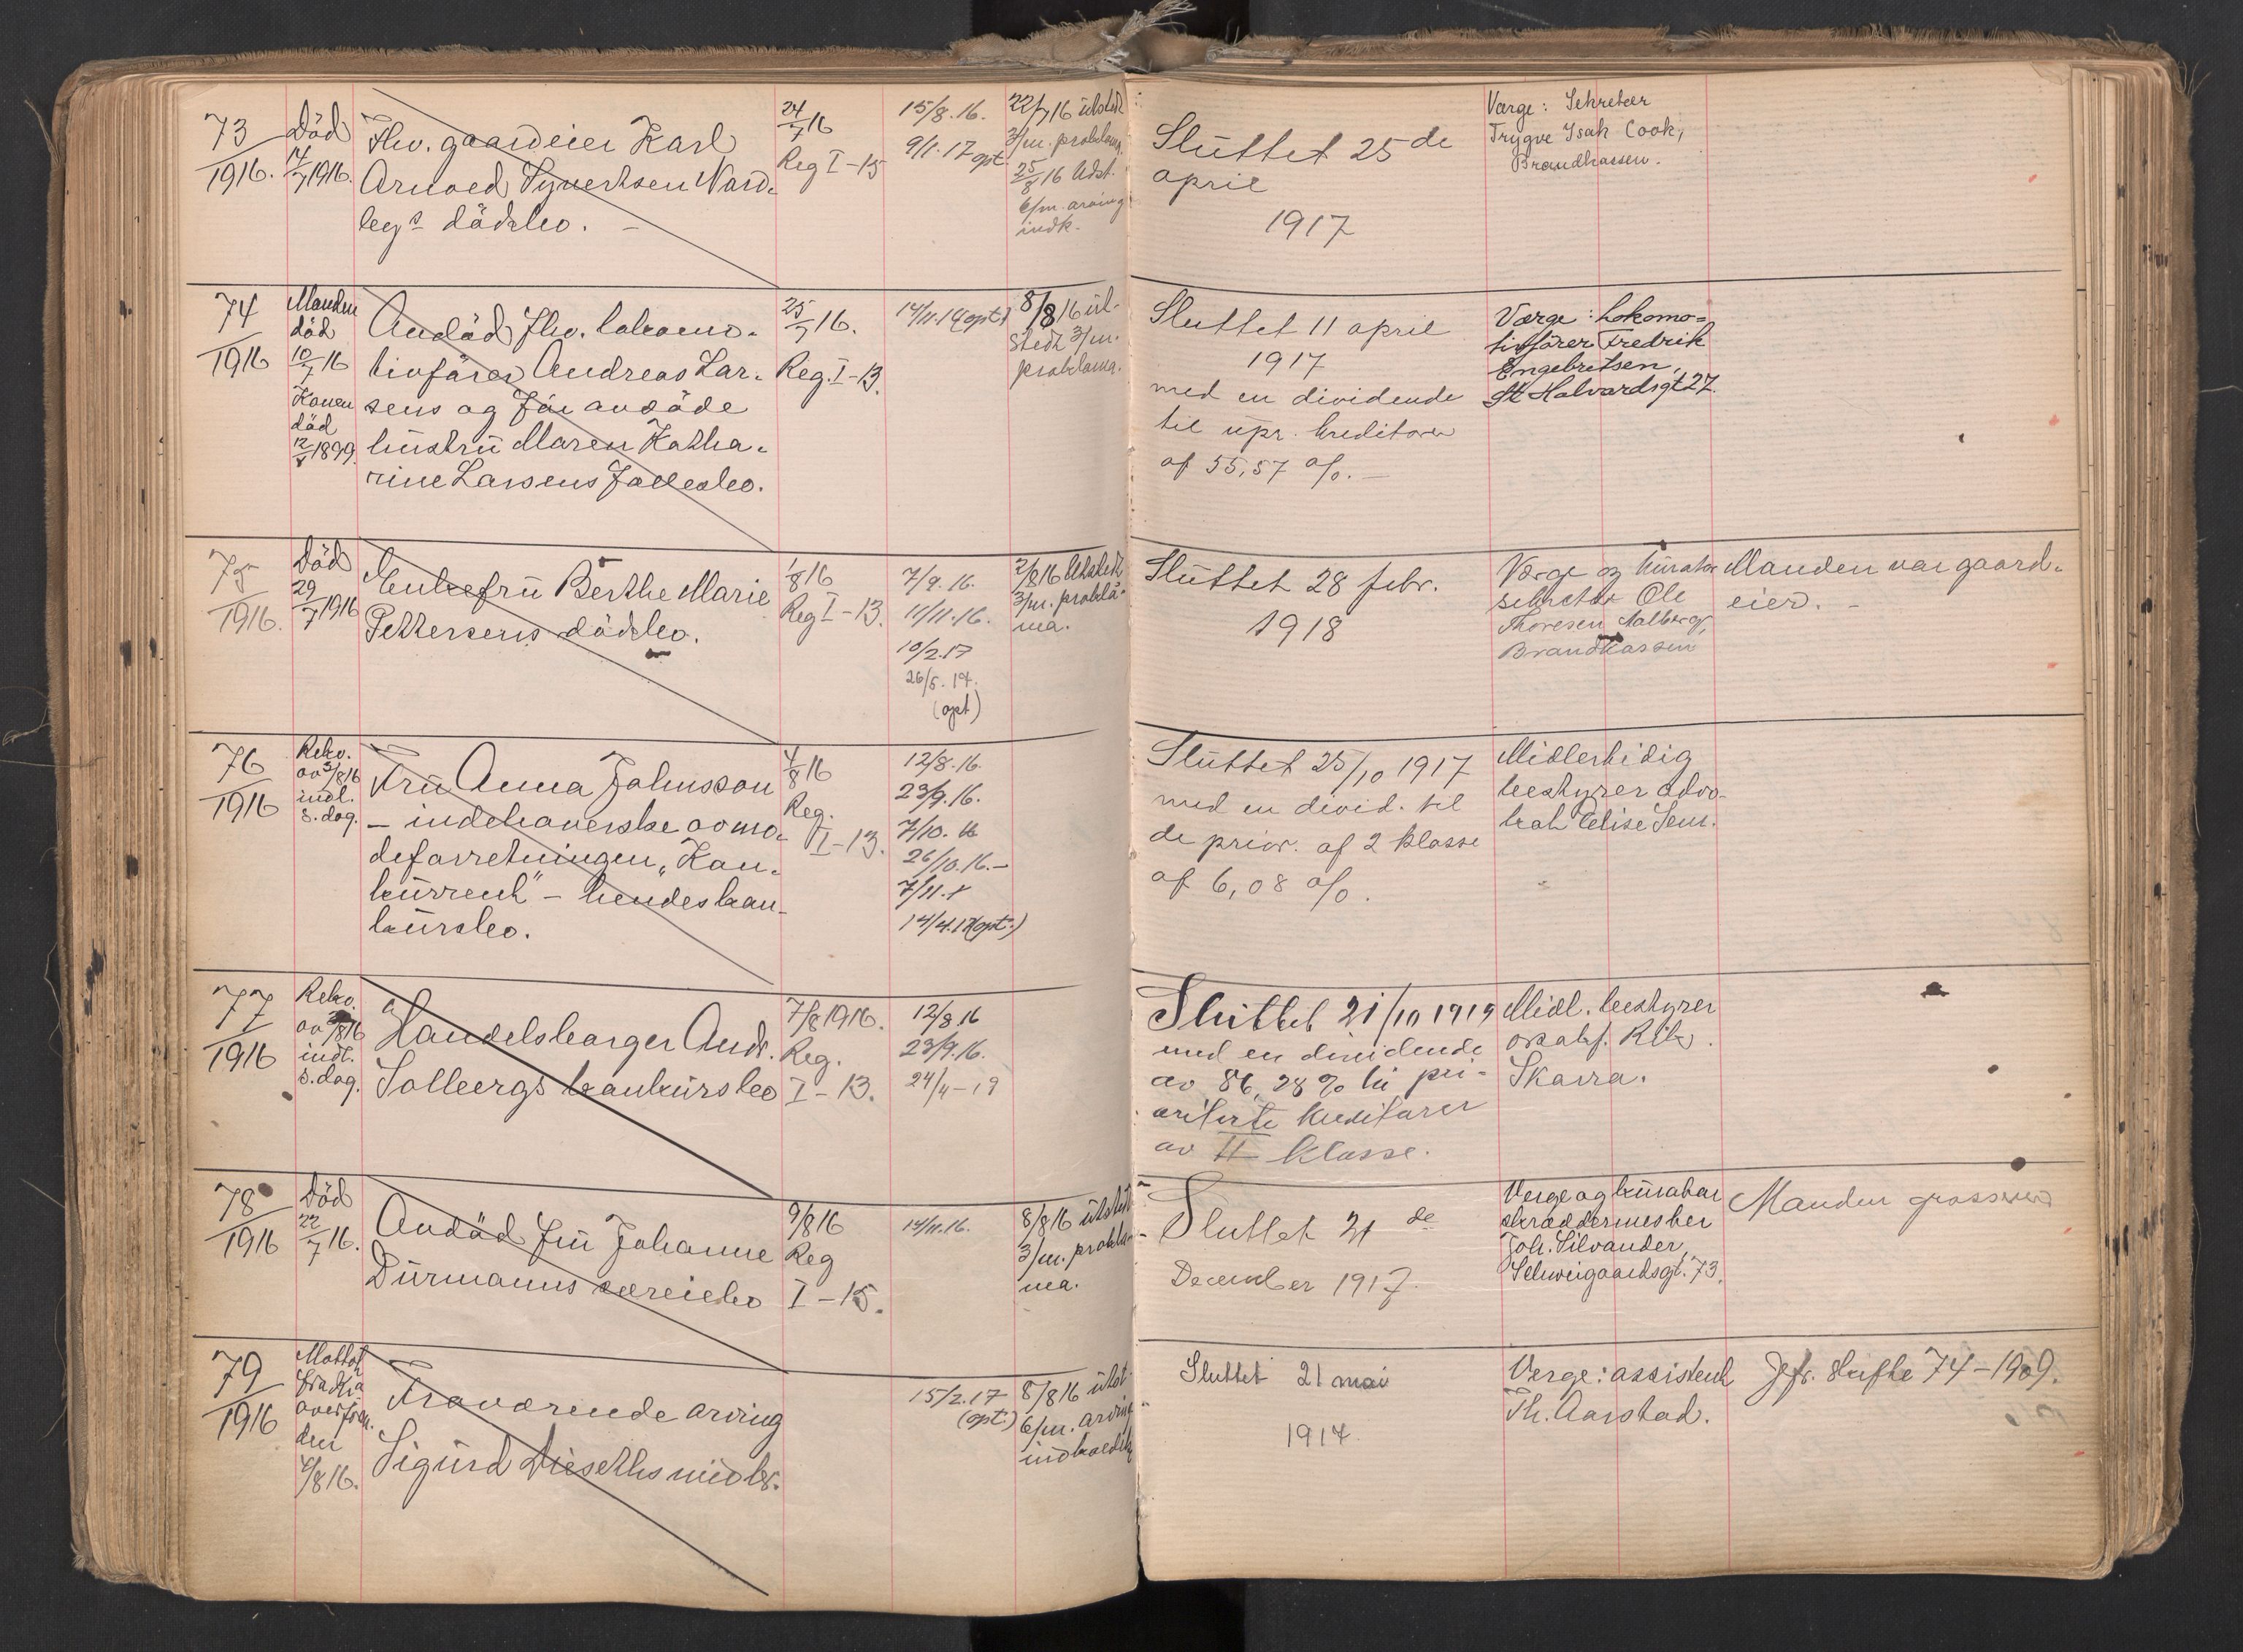 73
1916.
Död
14/7 1916.
Fhv. gaardeier Karl
Arnoed Syvertsen Nard-
legs dödsbo. –
24/7 16
Reg I-15
15/8.16.
9/1.17 opt
22/7 16 utstedt
3/m. proklama.
25/8 16 Udst.
6/m. arving
indk.
Sluttet 25de
april
1917
Værge: Sekretær
Trygve Isak Cook,
Brandkassen.
74
1916
Manden
död
10/7 16
Konen
död
12/8 1899.
Avdöd fhv. lokomo-
tivförer Andreas Lar-
sens og för avdöde
hustru Maren Katha-
rine Larsens fællesbo.
25/7 16.
Reg. I-13.
14/11.16 (opt.)
8/8 16 ut-
stedt 3/m.
proklama.
Sluttet 11 april
1917
med en dividende
til upr. kreditorer
af 55,57 o/o. –
Værge: Lokomo-
tivförer Fredrik
Engebretsen,
St Halvardsgt 27.
75
1916.
Död
29/7 1916
Enkefru Berthe Marie
Pettersens dödsbo.
1/8 16
Reg I-13.
7/9.16.
11/11.16.
10/2.17
26/5.17.
(opt)
2/8 16 Utstedt
3/m. prokla-
ma.
Sluttet 28 febr.
1918
Værge og kurator
sekretær Ole
Thoresen Aalberg,
Brandkassen
Manden var gaard-
eier. –
76
1916
Rekv.
av 3/8 16
indl.
s. dag.
Fru Anna Johnsson
– indehaverske av mo-
deforretningen „Kon-
kurrent" – hendes kon-
kursbo.
4/8 16
Reg.
I-13.
12/8.16.
23/9.16.
7/10.16
26/10.16.–
7/11.
14/4.17 (opt.)
Sluttet 25/10 1917
med en divid. til
de prior. af 2 klasse
af 6,08 o/o.
Midlertidig
bestyrer advo-
kat Elise Sem.
77
1916
Rekv.
av /8 16
indl.
s. dag.
Handelsborger Andr.
Solbergs konkursbo
7/8 1916.
Reg.
I-13.
12/8 16
23/9.16.
24/4-19
Sluttet 21/10 1919
med en dividende
av 86,28 % til pri-
oriterte kreditorer
av II klasse.
Midl. bestyrer
Skarra.
78
1916
Död
22/7 16.
Avdöd fru Johanne
Durmanns særeiebo
9/8 16
Reg
I-15.
14/11.16.
8/8 16 utstedt
3/m. prokla-
ma.
Sluttet 21de
December 1917.
Verge og kurator
skræddermester
Joh. Silvander,
Schweigaardsgt. 73.
Manden grosserer
79
1916
Mottat
fra Kra
overform.
den
4/8 16.
Fraværende arving
Sigurd Dieseths midler.
15/2.17
(opt.)
8/8 16 utst.
6/m. arving
indkaldelse
Sluttet 21 mai
1917.
Verge: assistent
Th. Aarstad.
Jfr. skifte 74-1909.